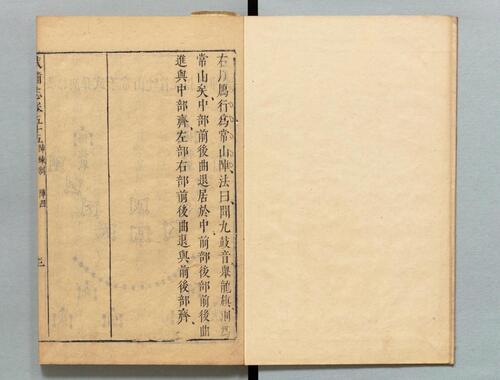 右以鴈行爲常山陣法曰聞九鼓音舉龍旗則爲
常山矣中部前後曲退居於中前部後部前後曲
進與中部齊左部右部前後曲退與前後部齊
武備志卷五十五 陣練制 陣四 三